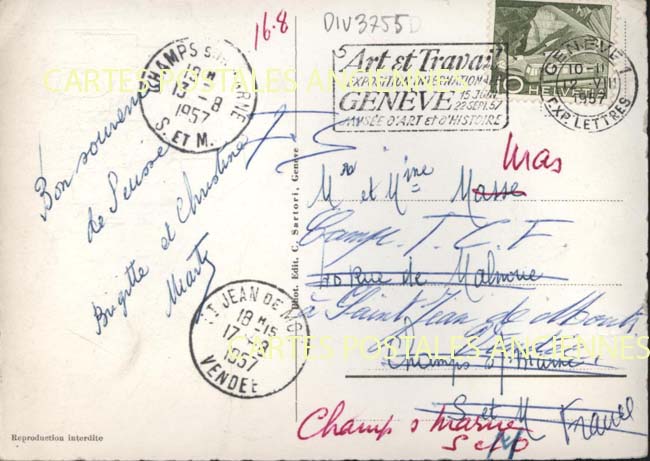 16.8
DIV3755D
CHAMPS SUR MARNE
18 H
13 - 8
1957
S. ET M.
5
Art et Travail
EXPOSITION INTERNATIONALE
GENÈVE 15 JUIN
22 SEPT. 57
MUSÉE D'ART ET D'HISTOIRE
10 HELVETIA
GENÈVE 1
10-11
1957
EXP. LETTRES
CARTES POSTALES ANCIENNES
Bon souvenir
de Suisse
Brigitte et Christine
Marty
Mras
Mr et Mme Masse
Camp. T. C. F.
10 Rue de Malnoue
à Saint Jean de Monts
Vendée
Champs s/ Marne
S et M France
Champ s marne
S et O
ST JEAN DE MONTS
18 H 15
17 - 8
1957
VENDEE
CARTES POSTALES ANCIENNES
Phot. Edit. C. Sartori, Genève
Reproduction interdite